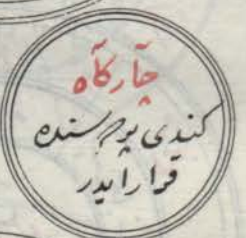 چارگاه
كندی پرده‌سنده
قرار ایدر